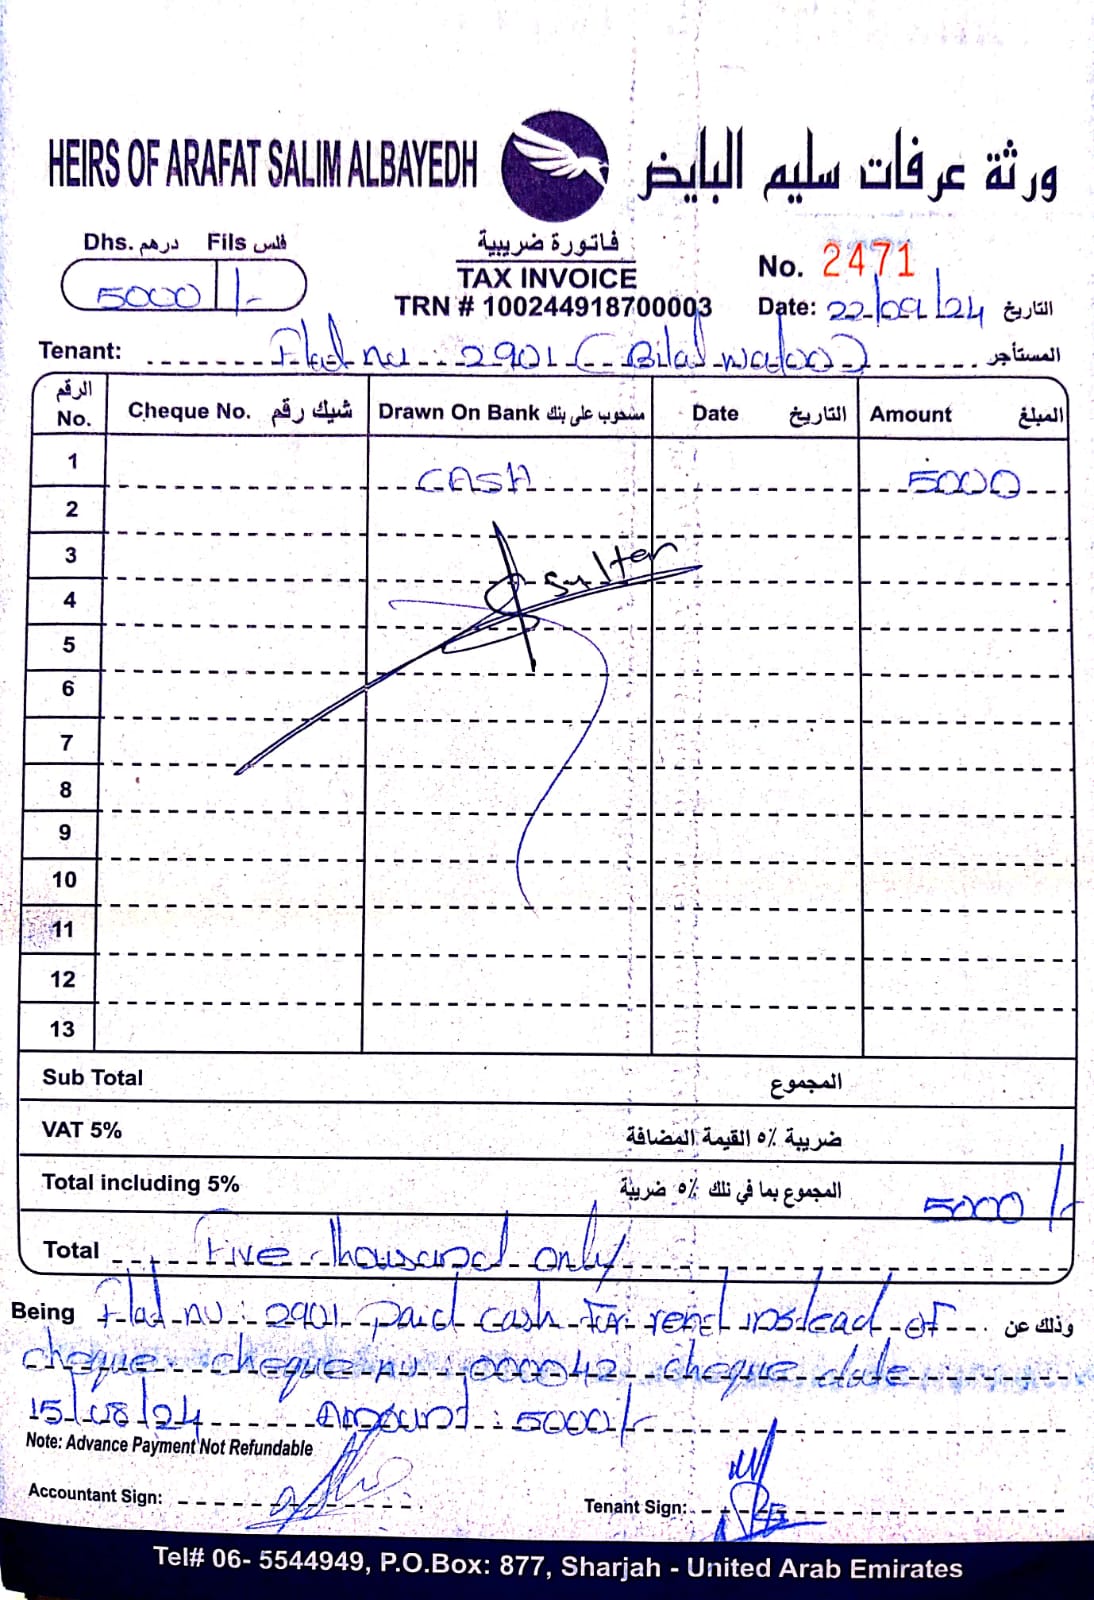 HEIRS OF ARAFAT SALIM ALBAYEDH ورثة عرفات سليم البايض
Dhs. درهم Fils فلس
5000 /-
فاتورة ضريبية
TAX INVOICE
TRN # 100244918700003
No. 2471
Date: 22/09/24 التاريخ
Tenant: Flat no : 2901 (Bilal المستأجر
الرقم No. Cheque No. شيك رقم Drawn On Bank مسحوب على بنك Date التاريخ Amount المبلغ
1 CASH 5000
2
3 Sultan
4
5
6
7
8
9
10
11
12
13
Sub Total المجموع
VAT 5% ضريبة ٥٪ القيمة المضافة
Total including 5% المجموع بما في تلك ٥٪ ضريبة 5000/-
Total Five thousand only
Being Flat no : 2901 paid cash for rent instead of وذلك عن
cheque cheque no : 000042 cheque date
15/08/24 Amount : 5000/-
Note: Advance Payment Not Refundable
Accountant Sign:
Tenant Sign:
Tel# 06- 5544949, P.O.Box: 877, Sharjah - United Arab Emirates